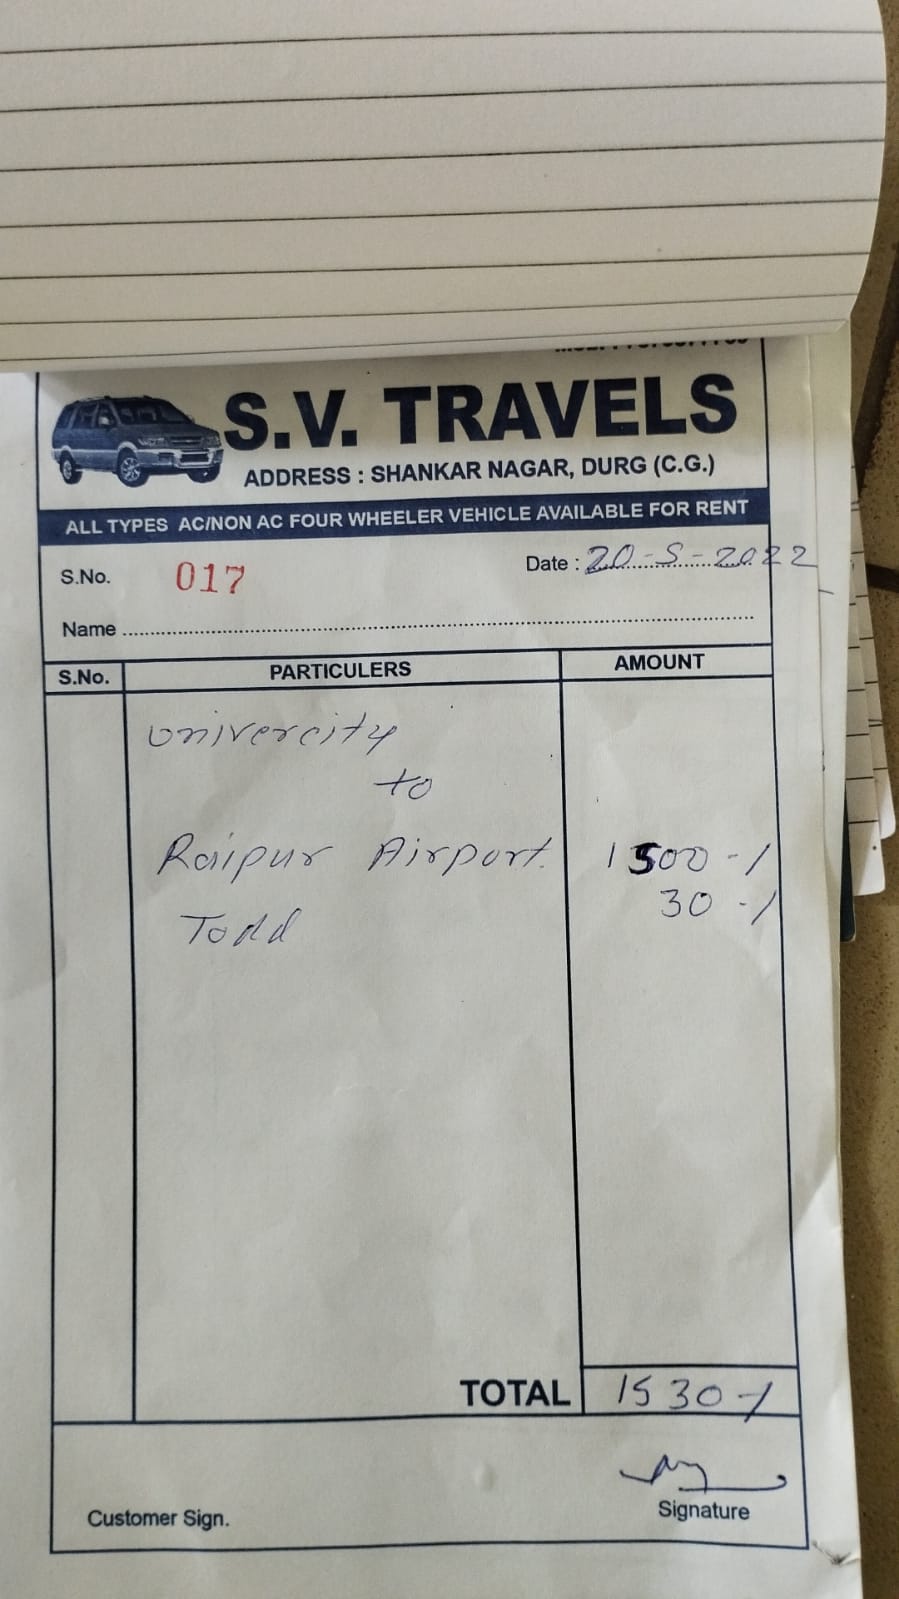 S.V. TRAVELS
ADDRESS : SHANKAR NAGAR, DURG (C.G.)
ALL TYPES AC/NON AC FOUR WHEELER VEHICLE AVAILABLE FOR RENT
S.No. 017 Date : 20-5-2022
Name
S.No. PARTICULERS AMOUNT
Univercity
to
Raipur Airport 1500-/
30-/
Todd
TOTAL 1530-/
Customer Sign. Signature